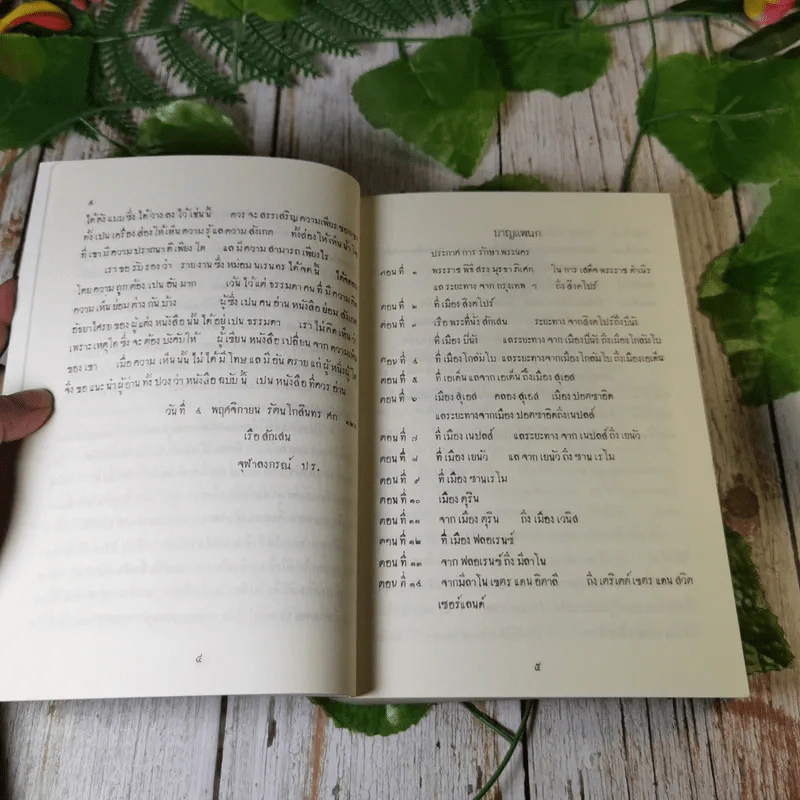 ๔
ได้ดังแบบซึ่ง ได้วางลงไว้เช่นนี้ ควรจะสรรเสริญความเพียร
ทั้งเปนเครื่องส่องให้เห็นความรู้แลความสังเกต ทั้งส่องให้เห็นน้ำใจ
ที่เขามีความปราถนาดีเพียงใด แลมีความสามารถเพียงไร
เราขอรับรองว่า รายงานซึ่งหม่อมนเรนทรได้จดนี้ ได้จดลง
โดยความถูกต้องเปนอันมาก เว้นไว้แต่ธรรมดาคนที่มีความคิด
ความเห็นย่อมต่างกันบ้าง ผู้ซึ่งเปนคนอ่านหนังสือย่อมสังเกต
อัธยาไศรยของผู้แต่งหนังสือนั้นได้อยู่เปนธรรมดา เราไม่คิดเห็นว่า
เพราะเหตุใดซึ่งจะต้องบังคับให้ ผู้เขียนหนังสือเปลี่ยนจากความเห็น
ของเขา เมื่อความเห็นนั้นไม่ได้มีโทษแลมีอันตรายแก่ผู้หนึ่งผู้ใด
จึ่งขอแนะนำผู้อ่านทั้งปวงว่าหนังสือฉบับนี้ เปนหนังสือที่ควรอ่าน
วันที่ ๔ พฤศจิกายน รัตนโกสินทรศก ๑๒๖
เรือสักเสน
จุฬาลงกรณ์ ปร.
๔
บาญแพนก
ประกาศการรักษาพระนคร
ตอนที่ ๑ พระราชพิธีสรงมุรธาภิเศก ในการเสด็จพระราชดำเนิร
แลระยะทางจากกรุงเทพ ฯ ถึงสิงคโปร์
ตอนที่ ๒ ที่เมืองสิงคโปร์
ตอนที่ ๓ เรือพระที่นั่งสักเสน ระยะทางจากสิงคโปร์ถึงปีนัง
ที่เมืองปีนัง แลระยะทางจากเมืองปีนังถึงเมืองโกลัมโบ
ตอนที่ ๔ ที่เมืองโกลัมโบ แลระยะทางจากเมืองโกลัมโบถึงเมืองเอเด็น
ตอนที่ ๕ ที่เอเด็นแลจากเอเด็นถึงเมืองสุเอส
ตอนที่ ๖ เมืองสุเอส คลองสุเอส เมืองปอตซาอิด
แลระยะทางจากเมืองปอตซาอิดถึงเนปลส์
ตอนที่ ๗ ที่เมืองเนปลส์ แลระยะทางจากเนปลส์ถึงเยนัว
ตอนที่ ๘ ที่เมืองเยนัว แลจากเยนัวถึงซานเรโม
ตอนที่ ๙ ที่เมืองซานเรโม
ตอนที่ ๑๐ เมืองตุริน
ตอนที่ ๑๑ จากเมืองตุริน ถึงเมืองเวนิส
ตอนที่ ๑๒ ที่เมืองฟลอเรนซ์
ตอนที่ ๑๓ จากฟลอเรนซ์ถึงมิลาโน
ตอนที่ ๑๔ จากมิลาโนเขตรแดนอิตาลี ถึงเตริเตต์เขตรแดนสวิต
เซอร์แลนด์
๕